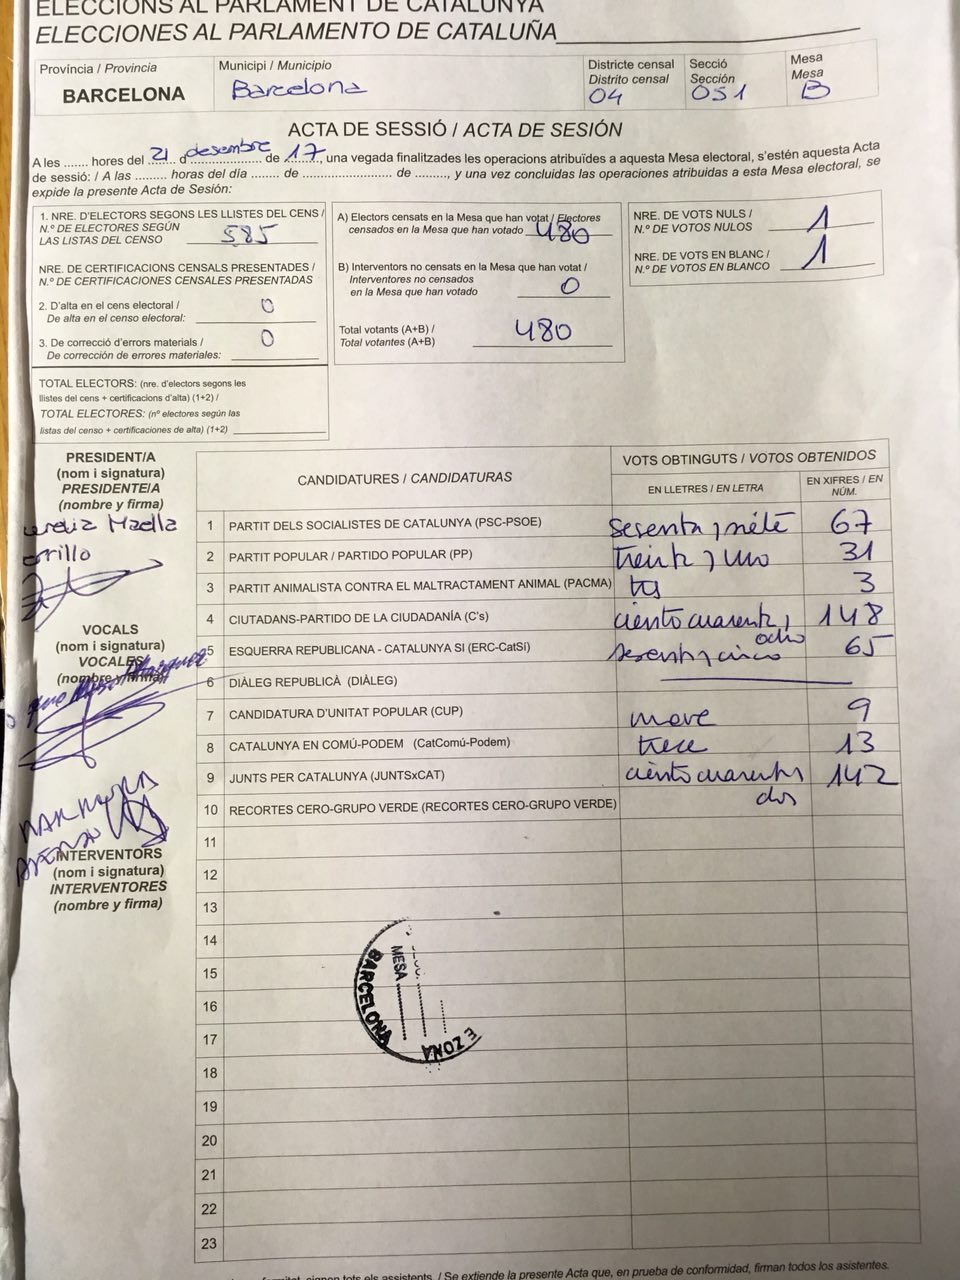 ELECCIONS AL PARLAMENT DE CATALUNYA
ELECCIONES AL PARLAMENTO DE CATALUÑA
Província / Provincia
BARCELONA
Municipi / Municipio
Barcelona
Districte censal
Distrito censal
04
Secció
Sección
051
Mesa
Mesa
B
ACTA DE SESSIÓ / ACTA DE SESIÓN
A les ....... hores del 21 d desembre de 17, una vegada finalitzades les operacions atribuïdes a aquesta Mesa electoral, s'estén aquesta Acta
de sessió: / A las ......... horas del día ........ de ........................ de .........., y una vez concluidas las operaciones atribuidas a esta Mesa electoral, se
expide la presente Acta de Sesión:
1. NRE. D'ELECTORS SEGONS LES LLISTES DEL CENS /
N.º DE ELECTORES SEGÚN
LAS LISTAS DEL CENSO 585
NRE. DE CERTIFICACIONS CENSALS PRESENTADES /
N.º DE CERTIFICACIONES CENSALES PRESENTADAS
2. D'alta en el cens electoral /
De alta en el censo electoral: 0
3. De correcció d'errors materials /
De corrección de errores materiales: 0
TOTAL ELECTORS: (nre. d'electors segons les
llistes del cens + certificacions d'alta) (1+2) /
TOTAL ELECTORES: (nº electores según las
listas del censo + certificaciones de alta) (1+2)
A) Electors censats en la Mesa que han votat / Electores
censados en la Mesa que han votado 480
B) Interventors no censats en la Mesa que han votat /
Interventores no censados
en la Mesa que han votado 0
Total votants (A+B) /
Total votantes (A+B) 480
NRE. DE VOTS NULS /
N.º DE VOTOS NULOS 1
NRE. DE VOTS EN BLANC /
N.º DE VOTOS EN BLANCO 1
PRESIDENT/A
(nom i signatura)
PRESIDENTE/A
(nombre y firma)
VOCALS
(nom i signatura)
VOCALES
(nombre y firma)
INTERVENTORS
(nom i signatura)
INTERVENTORES
(nombre y firma)
CANDIDATURES / CANDIDATURAS
VOTS OBTINGUTS / VOTOS OBTENIDOS
EN LLETRES / EN LETRA
EN XIFRES / EN NÚM.
1 PARTIT DELS SOCIALISTES DE CATALUNYA (PSC-PSOE) sesenta y siete 67
2 PARTIT POPULAR / PARTIDO POPULAR (PP) treinta y uno 31
3 PARTIT ANIMALISTA CONTRA EL MALTRACTAMENT ANIMAL (PACMA) tres 3
4 CIUTADANS-PARTIDO DE LA CIUDADANÍA (C's) ciento cuarenta y ocho 148
5 ESQUERRA REPUBLICANA - CATALUNYA SI (ERC-CatSí) sesenta y cinco 65
6 DIÀLEG REPUBLICÀ (DIÀLEG)
7 CANDIDATURA D'UNITAT POPULAR (CUP) nueve 9
8 CATALUNYA EN COMÚ-PODEM (CatComú-Podem) trece 13
9 JUNTS PER CATALUNYA (JUNTSxCAT) ciento cuarenta dos 142
10 RECORTES CERO-GRUPO VERDE (RECORTES CERO-GRUPO VERDE)
11
12
13
14
15
16
17
18
19
20
21
22
23
MESA
BARCELONA
E ZONA
signen tots els assistents. / Se extiende la presente Acta que, en prueba de conformidad, firman todos los asistentes.